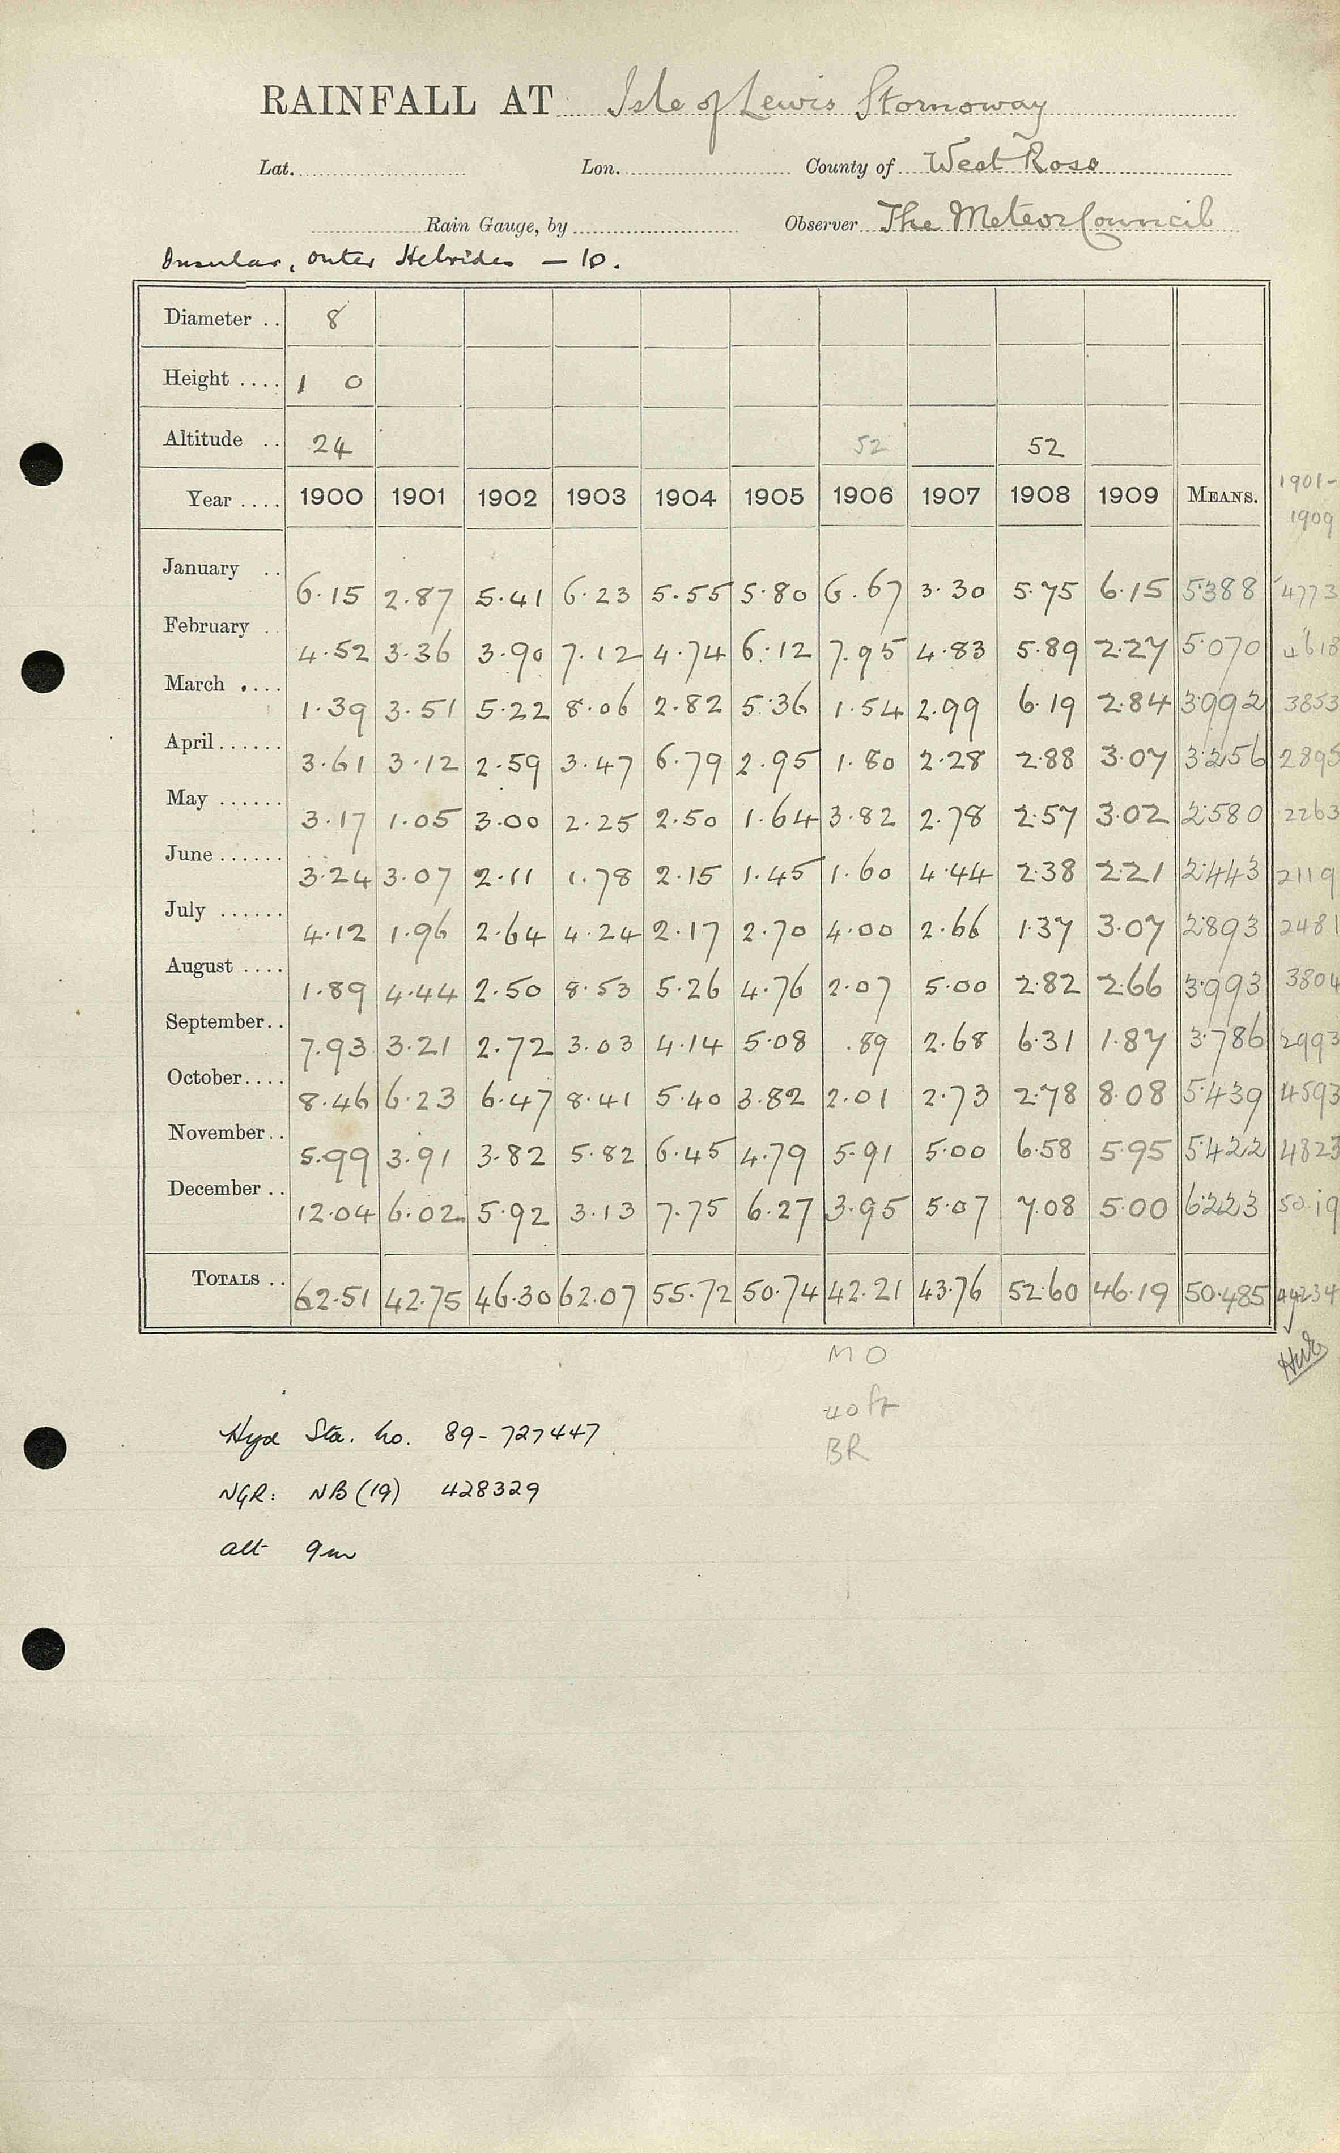 RAINFALL AT Isle of Lewis Stornoway
Lat. Lon. County of West Ross
Rain Gauge, by Observer The Meteor Council
Insular, Outer Hebrides — 10.
Diameter .. 8
Height .... 1 0
Altitude .. 24 52 52
Year .... 1900 1901 1902 1903 1904 1905 1906 1907 1908 1909 MEANS. 1901-1909
January .. 6.15 2.87 5.41 6.23 5.55 5.80 6.67 3.30 5.75 6.15 5.388 4773
February . 4.52 3.36 3.90 7.12 4.74 6.12 7.95 4.83 5.89 2.27 5.070 4618
March .... 1.39 3.51 5.22 8.06 2.82 5.36 1.54 2.99 6.19 2.84 3.992 3853
April...... 3.61 3.12 2.59 3.47 6.79 2.95 1.80 2.28 2.88 3.07 3.256 2895
May ...... 3.17 1.05 3.00 2.25 2.50 1.64 3.82 2.78 2.57 3.02 2.580 2263
June ...... 3.24 3.07 2.11 1.78 2.15 1.45 1.60 4.44 2.38 2.21 2.443 2119
July ...... 4.12 1.96 2.64 4.24 2.17 2.70 4.00 2.66 1.37 3.07 2.893 2481
August .... 1.89 4.44 2.50 8.53 5.26 4.76 2.07 5.00 2.82 2.66 3.993 3804
September.. 7.93 3.21 2.72 3.03 4.14 5.08 .89 2.68 6.31 1.87 3.786 2993
October.... 8.46 6.23 6.47 8.41 5.40 3.82 2.01 2.73 2.78 8.08 5.439 4593
November.. 5.99 3.91 3.82 5.82 6.45 4.79 5.91 5.00 6.58 5.95 5.422 4823
December .. 12.04 6.02 5.92 3.13 7.75 6.27 3.95 5.07 7.08 5.00 6.223 50.19
TOTALS .. 62.51 42.75 46.30 62.07 55.72 50.74 42.21 43.76 52.60 46.19 50.485 44234
MO
40 ft
BR
Hyd Sta. no. 89-727447
NGR: NB (19) 428329
alt 9m